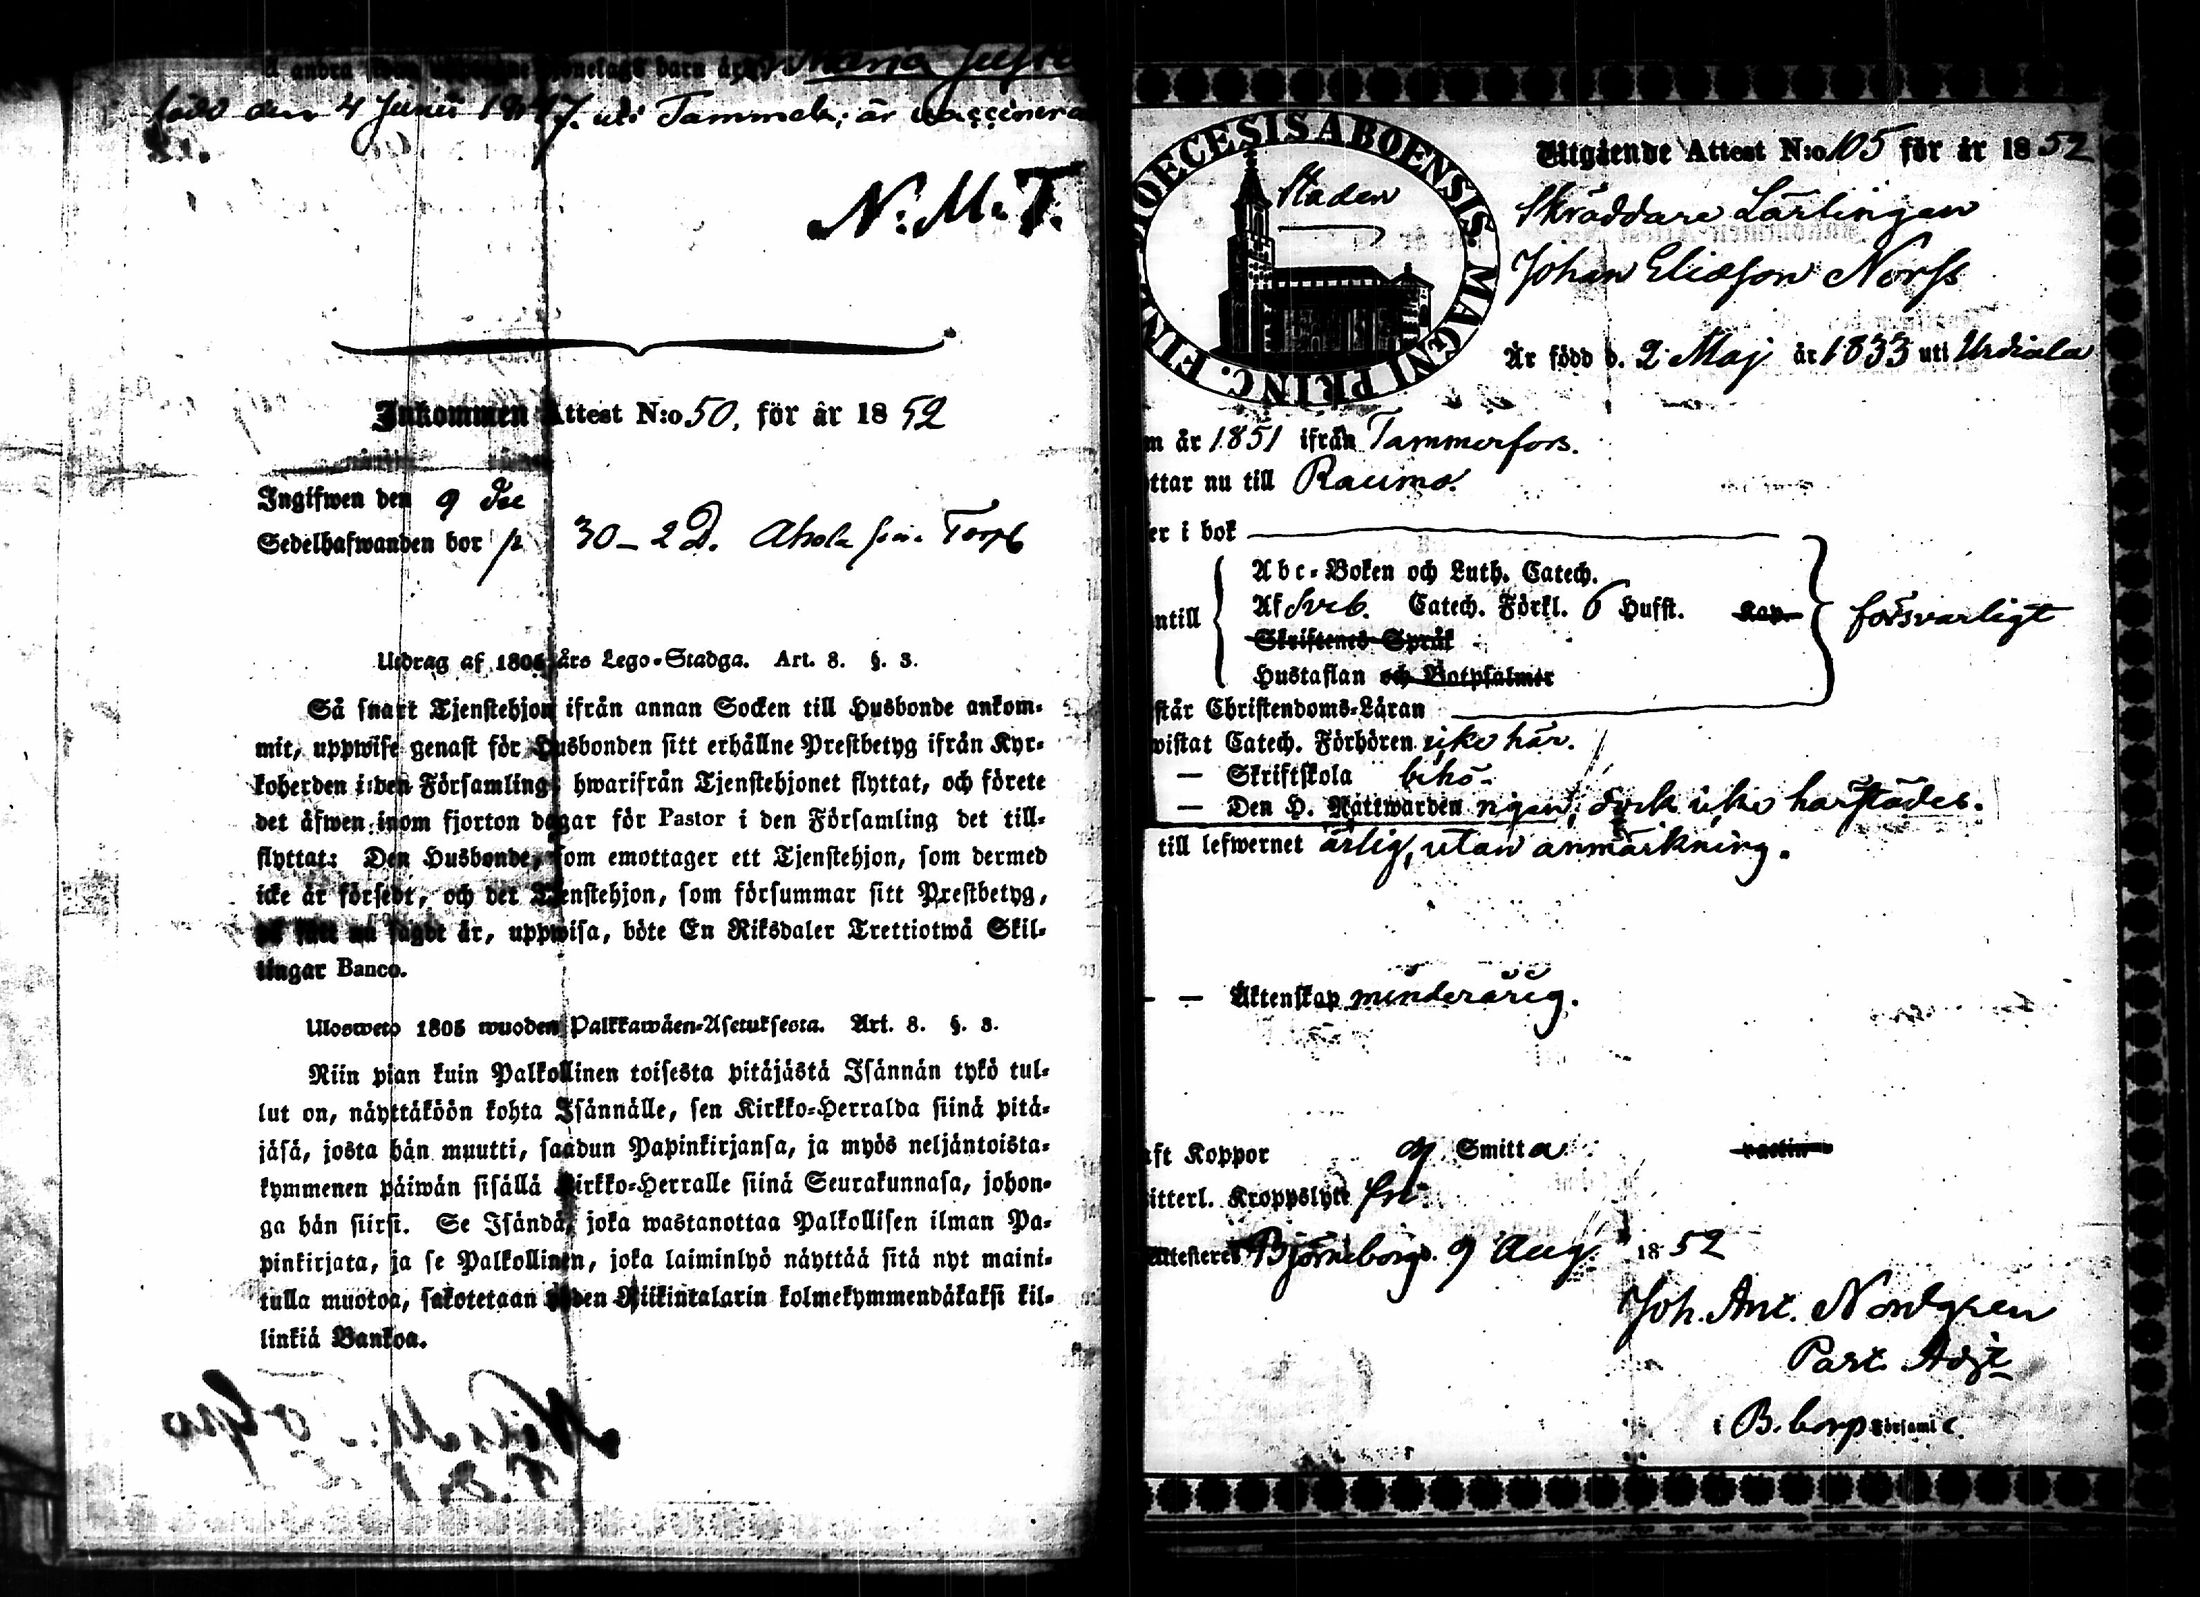 Maria
född den 4 Junii 1847. uti Tammela; är vaccinera
N: M. T.
Inkommen Attest N:o 50, för år 1852
Ingifwen den 9
Sedelhafwanden bor p 30–2 D. Torp
Utdrag af 1805 års Lego-Stadga. Art. 8. §. 3.
Så snart Tjenstehjon ifrån annan Socken till Husbonde ankom-
mit, uppwise genast för Husbonden sitt erhållne Prestbetyg ifrån Kyr-
koherden i den Församling, hwarifrån Tjenstehjonet flyttat, och förete
det äfwen inom fjorton dagar för Pastor i den Församling det till-
flyttat: Den Husbonde, som emottager ett Tjenstehjon, som dermed
icke är försedt, och det Tjenstehjon, som försummar sitt Prestbetyg,
på sätt nu sagdt är, uppwisa, böte En Riksdaler Trettiotwå Skil-
lingar Banco.
Ulosweto 1805 wuoden Palkkawäen-Asetuksesta. Art. 8. §. 3.
Niin pian kuin Palkollinen toisesta pitäjästä Isännän tykö tul-
lut on, näyttäköön kohta Isännälle, sen Kirkko-Herralda siinä pitä-
jäsä, josta hän muutti, saadun Papinkirjansa, ja myös neljäntoista-
kymmenen päiwän sisällä Kirkko-Herralle siinä Seurakunnasa, johon-
ga hän siirsi. Se Isändä, joka wastanottaa Palkollisen ilman Pa-
pinkirjata, ja se Palkollinen, joka laiminlyö näyttää sitä nyt maini-
tulla muotoa, sakotetaan yhden Riikintalarin kolmekymmendäkaksi kil-
linkiä Bankoa.
DIOECESIS ABOENSIS. MAGNI PRINC. FIN
Staden
Utgående Attest N:o 105 för år 1852
Skräddare Lärlingen
Johan Eliasson Norss
Är född d. 2 Maj år 1833 uti Urdiala
m år 1851 ifrån Tammerfors.
ttar nu till Raumo.
er i bok
Abc-Boken och Luth. Catech.
Af Sveb. Catech. Förkl. 6 Hufst. Kap. försvarligt
ntill
Skriftenes Språk
Hustaflan och Botpsalmer
står Christendoms-Läran
wistat Catech. Förhören icke här.
— Skriftskola
— Den H. Nattwarden icke härstädes.
till lefwernet ärlig, utan anmärkning.
— — Äktenskap minderårig.
aft Koppor Smitta vaccin
itterl. Kroppslyte fri
Attesteres Björneborg d. 9 Aug. 1852
Joh. Ant. Nordgren
Past. Adjt
i B. borg Församl